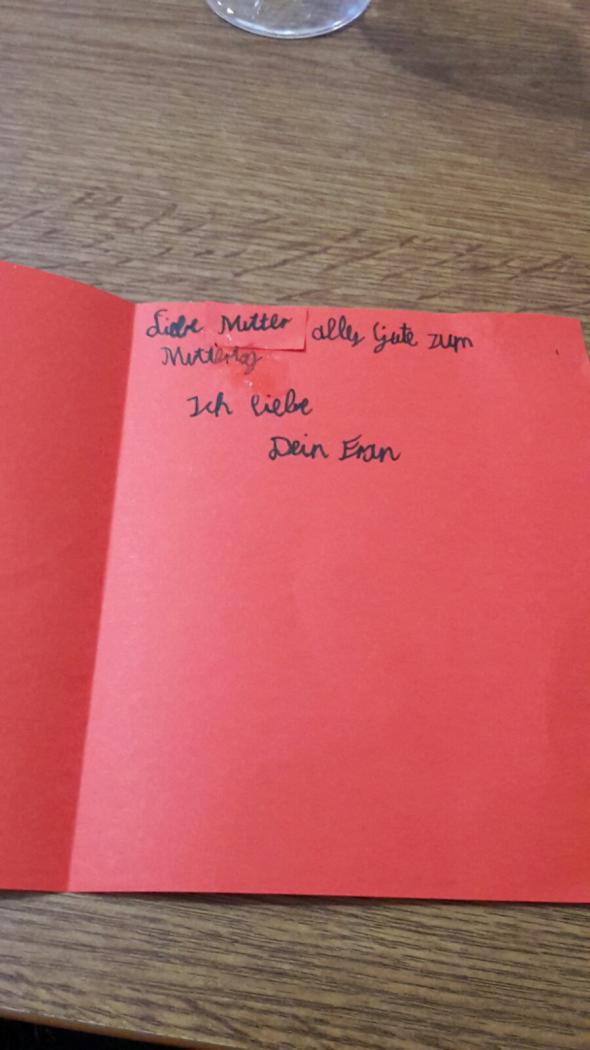 Liebe Mutter alles Gute zum
Muttertag
Ich liebe
Dein Eran